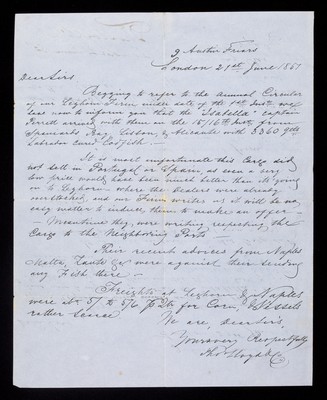 9 Austin Friars
London 21st June 1851
Dear Sirs
Begging to refer to the Annual Circular
of our Leghorn Firm under date of the 1st Inst. we
have now to inform you that the "Isabella" Captain
arrived with them on the 15/16th Inst. from
Spaniards Bay, Lisbon, & Alicante with 3360 qtls
Labrador cured Codfish.—
It is most unfortunate this Cargo did
not sell in Portugal or Spain, as even a very
low price would have been much better than its going
on to Leghorn where the Dealers were already
overstocked, and our Firm writes us it will be no
easy matter to induce them to make an offer—
—Meantime they were writing respecting the
Cargo to the Neighboring Ports—
Their recent advices from Naples
Malta, & were against their sending
any Fish there—
Freights at Leghorn & Naples
were at 5/ to 5/6 for Corn, & Vessels
rather scarce
We are, Dear Sirs,
Yours very Respectfully
Thos Lloyd & Co